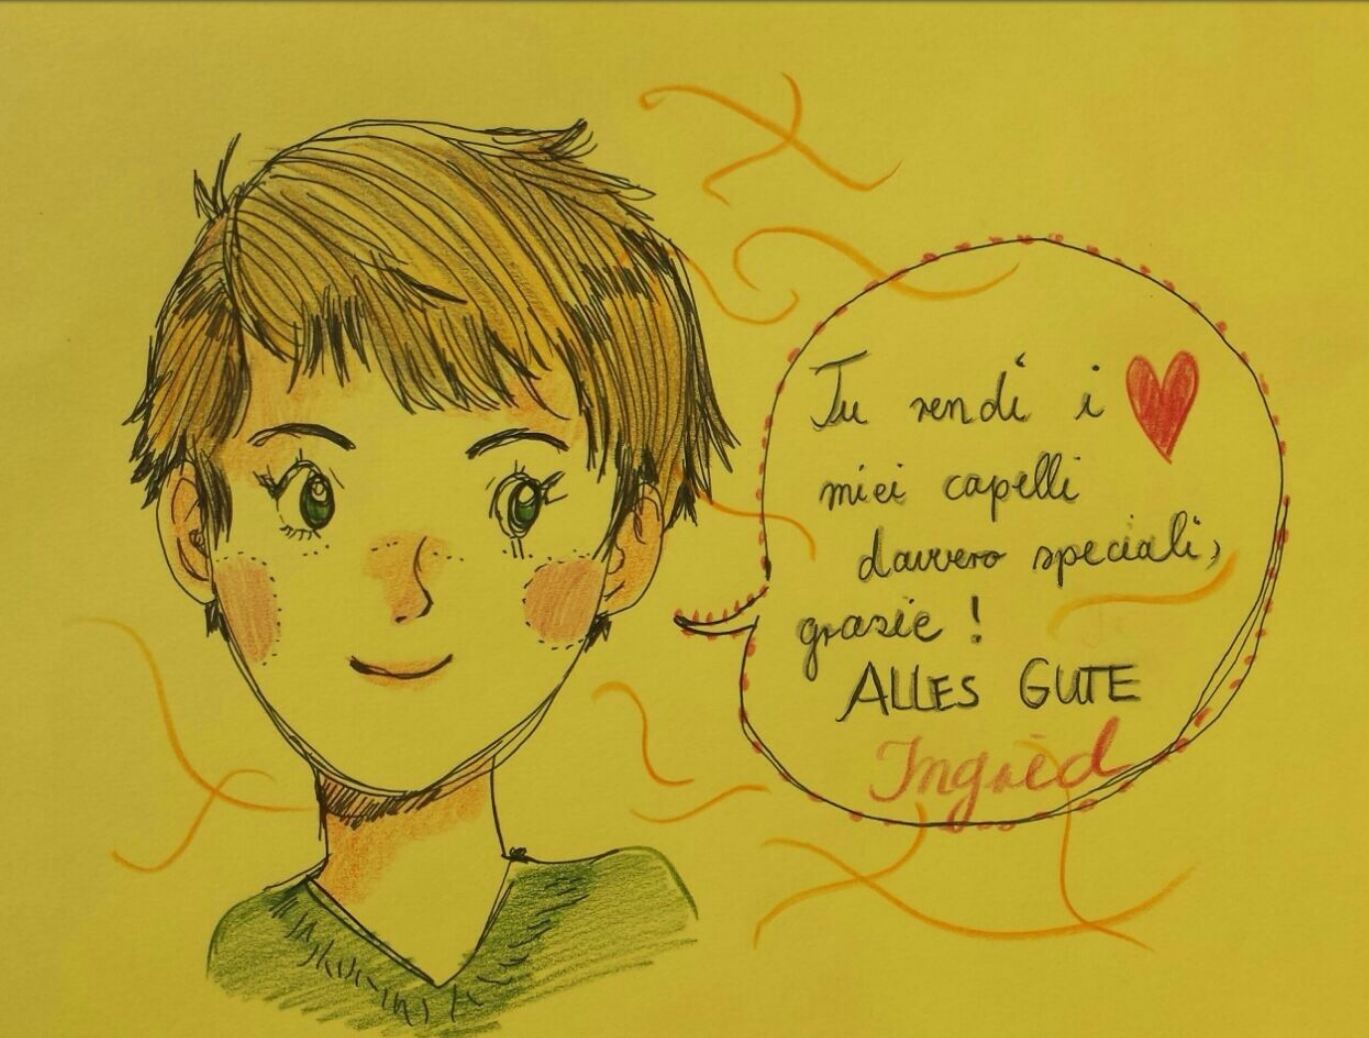 Tu rendi i
miei capelli
davvero speciali,
grazie !
ALLES GUTE
Ingrid